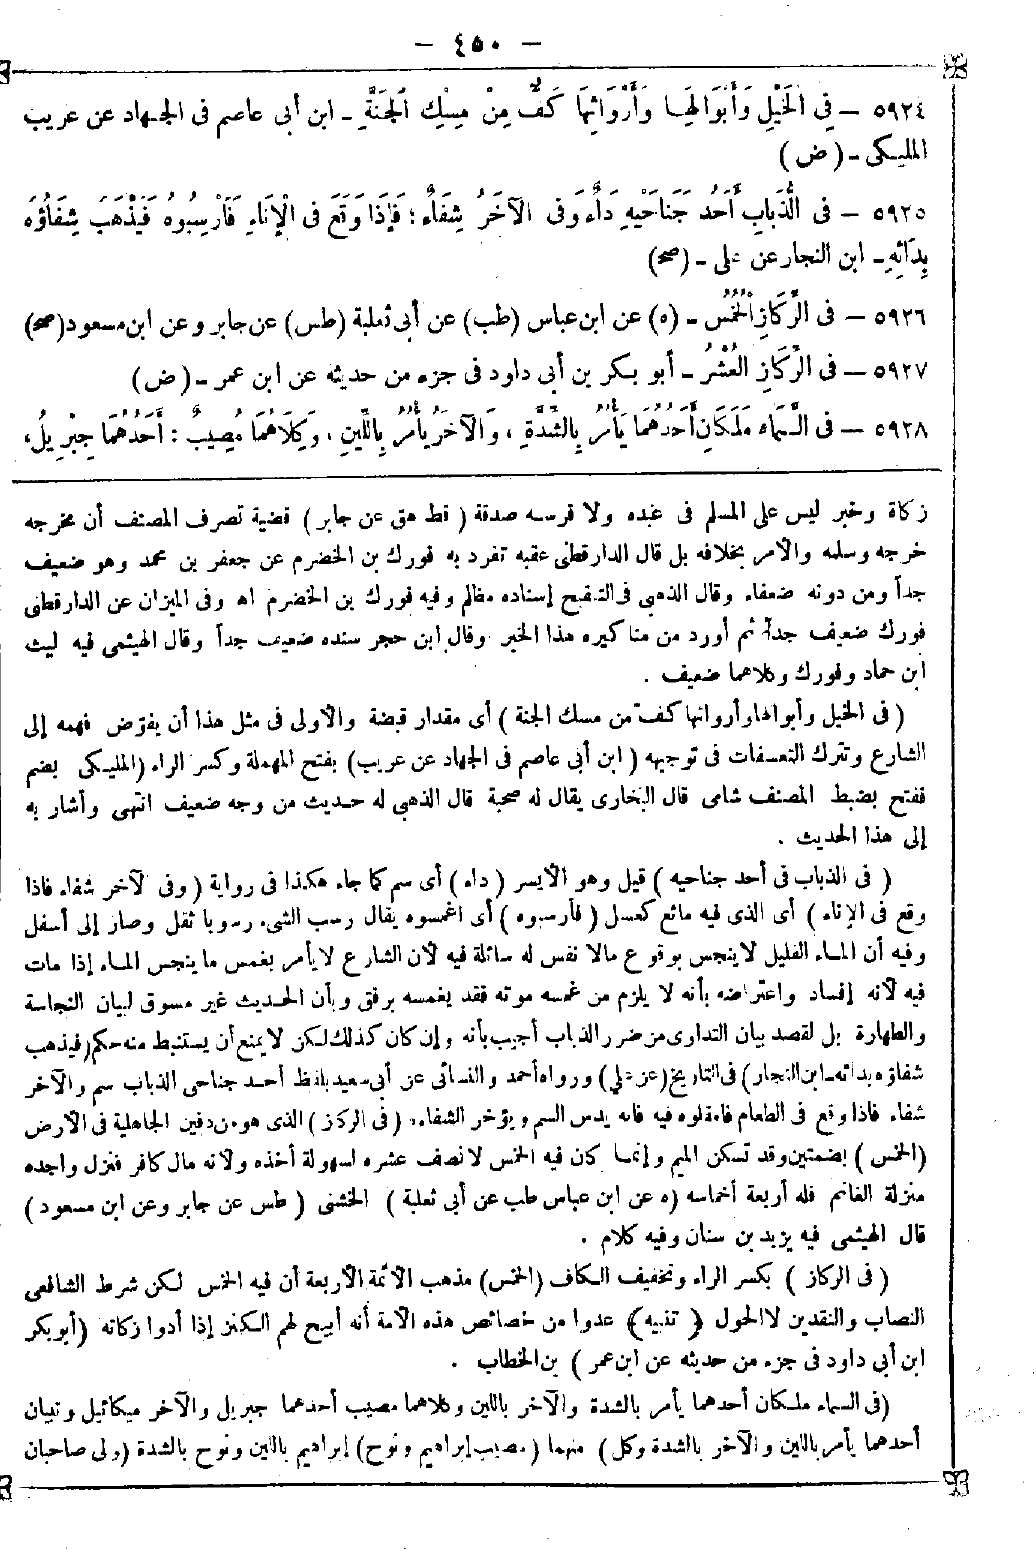 – ٤٥٠ –
٥٩٢٤ – فِى الْخَيْلِ وَأَبْوَالِهَا وَأَرْوَاثِهَا كَفٌّ مِنْ مِسْكِ الْجَنَّةِ - ابن أبى عاصم فى الجهاد عن عريب
المليكى - (ض)
٥٩٢٥ – فى الذُّبَابِ أَحَدُ جَنَاحَيْهِ دَاءٌ وَفى الآخَرُ شِفَاءٌ؛ فَإِذَا وَقَعَ فى الْإِنَاءِ فَأَرْسِبُوهُ فَيَذْهَبَ شِفَاؤُهُ
بِدَائِهِ - ابن النجار عن على - (صح)
٥٩٢٦ – فى الرِّكَازِ الْخُمُسُ - (ه) عن ابن عباس (طب) عن أبى ثعلبة (طس) عن جابر وعن ابن مسعود (صح)
٥٩٢٧ – فى الرِّكَازِ الْعُشْرُ - أبو بكر بن أبى داود فى جزء من حديثه عن ابن عمر - (ض)
٥٩٢٨ – فى السَّمَاءِ مَلَكَانِ أَحَدُهُمَا يَأْمُرُ بِالشِّدَّةِ، وَالآخَرُ يَأْمُرُ بِاللِّينِ، وَكِلَاهُمَا مُصِيبٌ: أَحَدُهُمَا جِبْرِيلُ،
زكاة وخبر ليس على المسلم فى عبده ولا فرسه صدقة (قط هق عن جابر) قضية تصرف المصنف أن مخرجه
خرجه وسلمه والأمر بخلافه بل قال الدارقطنى عقبه تفرد به فورك بن الخضرم عن جعفر بن محمد وهو ضعيف
جداً ومن دونه ضعفاء وقال الذهبى فى التنقيح إسناده مظلم وفيه فورك بن الخضرم اه وفى الميزان عن الدارقطنى
فورك ضعيف جداً ثم أورد من مناكيره هذا الخبر وقال ابن حجر سنده ضعيف جداً وقال الهيثمى فيه ليث
ابن حماد وفورك وكلاهما ضعيف .
(فى الخيل وأبوالها وأرواثها كف من مسك الجنة) أى مقدار قبضة والأولى فى مثل هذا أن يفوّض فهمه إلى
الشارع وتترك التعسفات فى توجيهه (ابن أبى عاصم فى الجهاد عن عريب) بفتح المهملة وكسر الراء (المليكى بضم
ففتح بضبط المصنف شامى قال البخارى يقال له صحبة قال الذهبى له حديث من وجه ضعيف انتهى وأشار به
إلى هذا الحديث .
(فى الذباب فى أحد جناحيه) قيل وهو الأيسر (داء) أى سم كما جاء هكذا فى رواية (وفى الآخر شفاء فاذا
وقع فى الإناء) أى الذى فيه مائع كعسل (فأرسبوه) أى اغمسوه يقال رسب الشىء رسوبا ثقل وصار إلى أسفل
وفيه أن الماء القليل لاينجس بوقوع مالا نفس له سائلة فيه لأن الشارع لايأمر بغمس ماينجس الماء إذا مات
فيه لأنه إفساد واعتراضه بأنه لا يلزم من غمسه موته فقد يغمسه برفق وبأن الحديث غير مسوق لبيان النجاسة
والطهارة بل لقصد بيان التداوى من ضرر الذباب أجيب بأنه وإن كان كذلك لكن لايمنع أن يستنبط منه حكم (فيذهب
شفاؤه بدائه - ابن النجار) فى التاريخ (عن على) ورواه أحمد والنسائى عن أبى سعيد بلفظ أحد جناحى الذباب سم والآخر
شفاء فاذا وقع فى الطعام فامقلوه فيه فانه يدس السم ويؤخر الشفاء، (فى الركز) الذى هو من دفين الجاهلية فى الأرض
(الخمس) بضمتين وقد تسكن الميم وإنما كان فيه الخمس لا نصف عشره لسهولة أخذه ولأنه مال كافر فنزل واجده
منزلة الغانم فله أربعة أخماسه (ه عن ابن عباس طب عن أبى ثعلبة) الخشنى (طس عن جابر وعن ابن مسعود)
قال الهيثمى فيه يزيد بن سنان وفيه كلام .
(فى الركاز) بكسر الراء وتخفيف الكاف (الخمس) مذهب الأئمة الأربعة أن فيه الخمس لكن شرط الشافعى
النصاب والنقدين لا الحول ﴿تنبيه﴾ عدوا من خصائص هذه الأمة أنه أبيح لهم الكنز إذا أدوا زكاته (أبو بكر
ابن أبى داود فى جزء من حديثه عن ابن عمر) بن الخطاب .
(فى السماء ملكان أحدهما يأمر بالشدة والآخر باللين وكلاهما مصيب أحدهما جبريل والآخر ميكائيل ونبيان
أحدهما يأمر باللين والآخر بالشدة وكل) منهما (مصيب إبراهيم ونوح) إبراهيم باللين ونوح بالشدة (ولى صاحبان